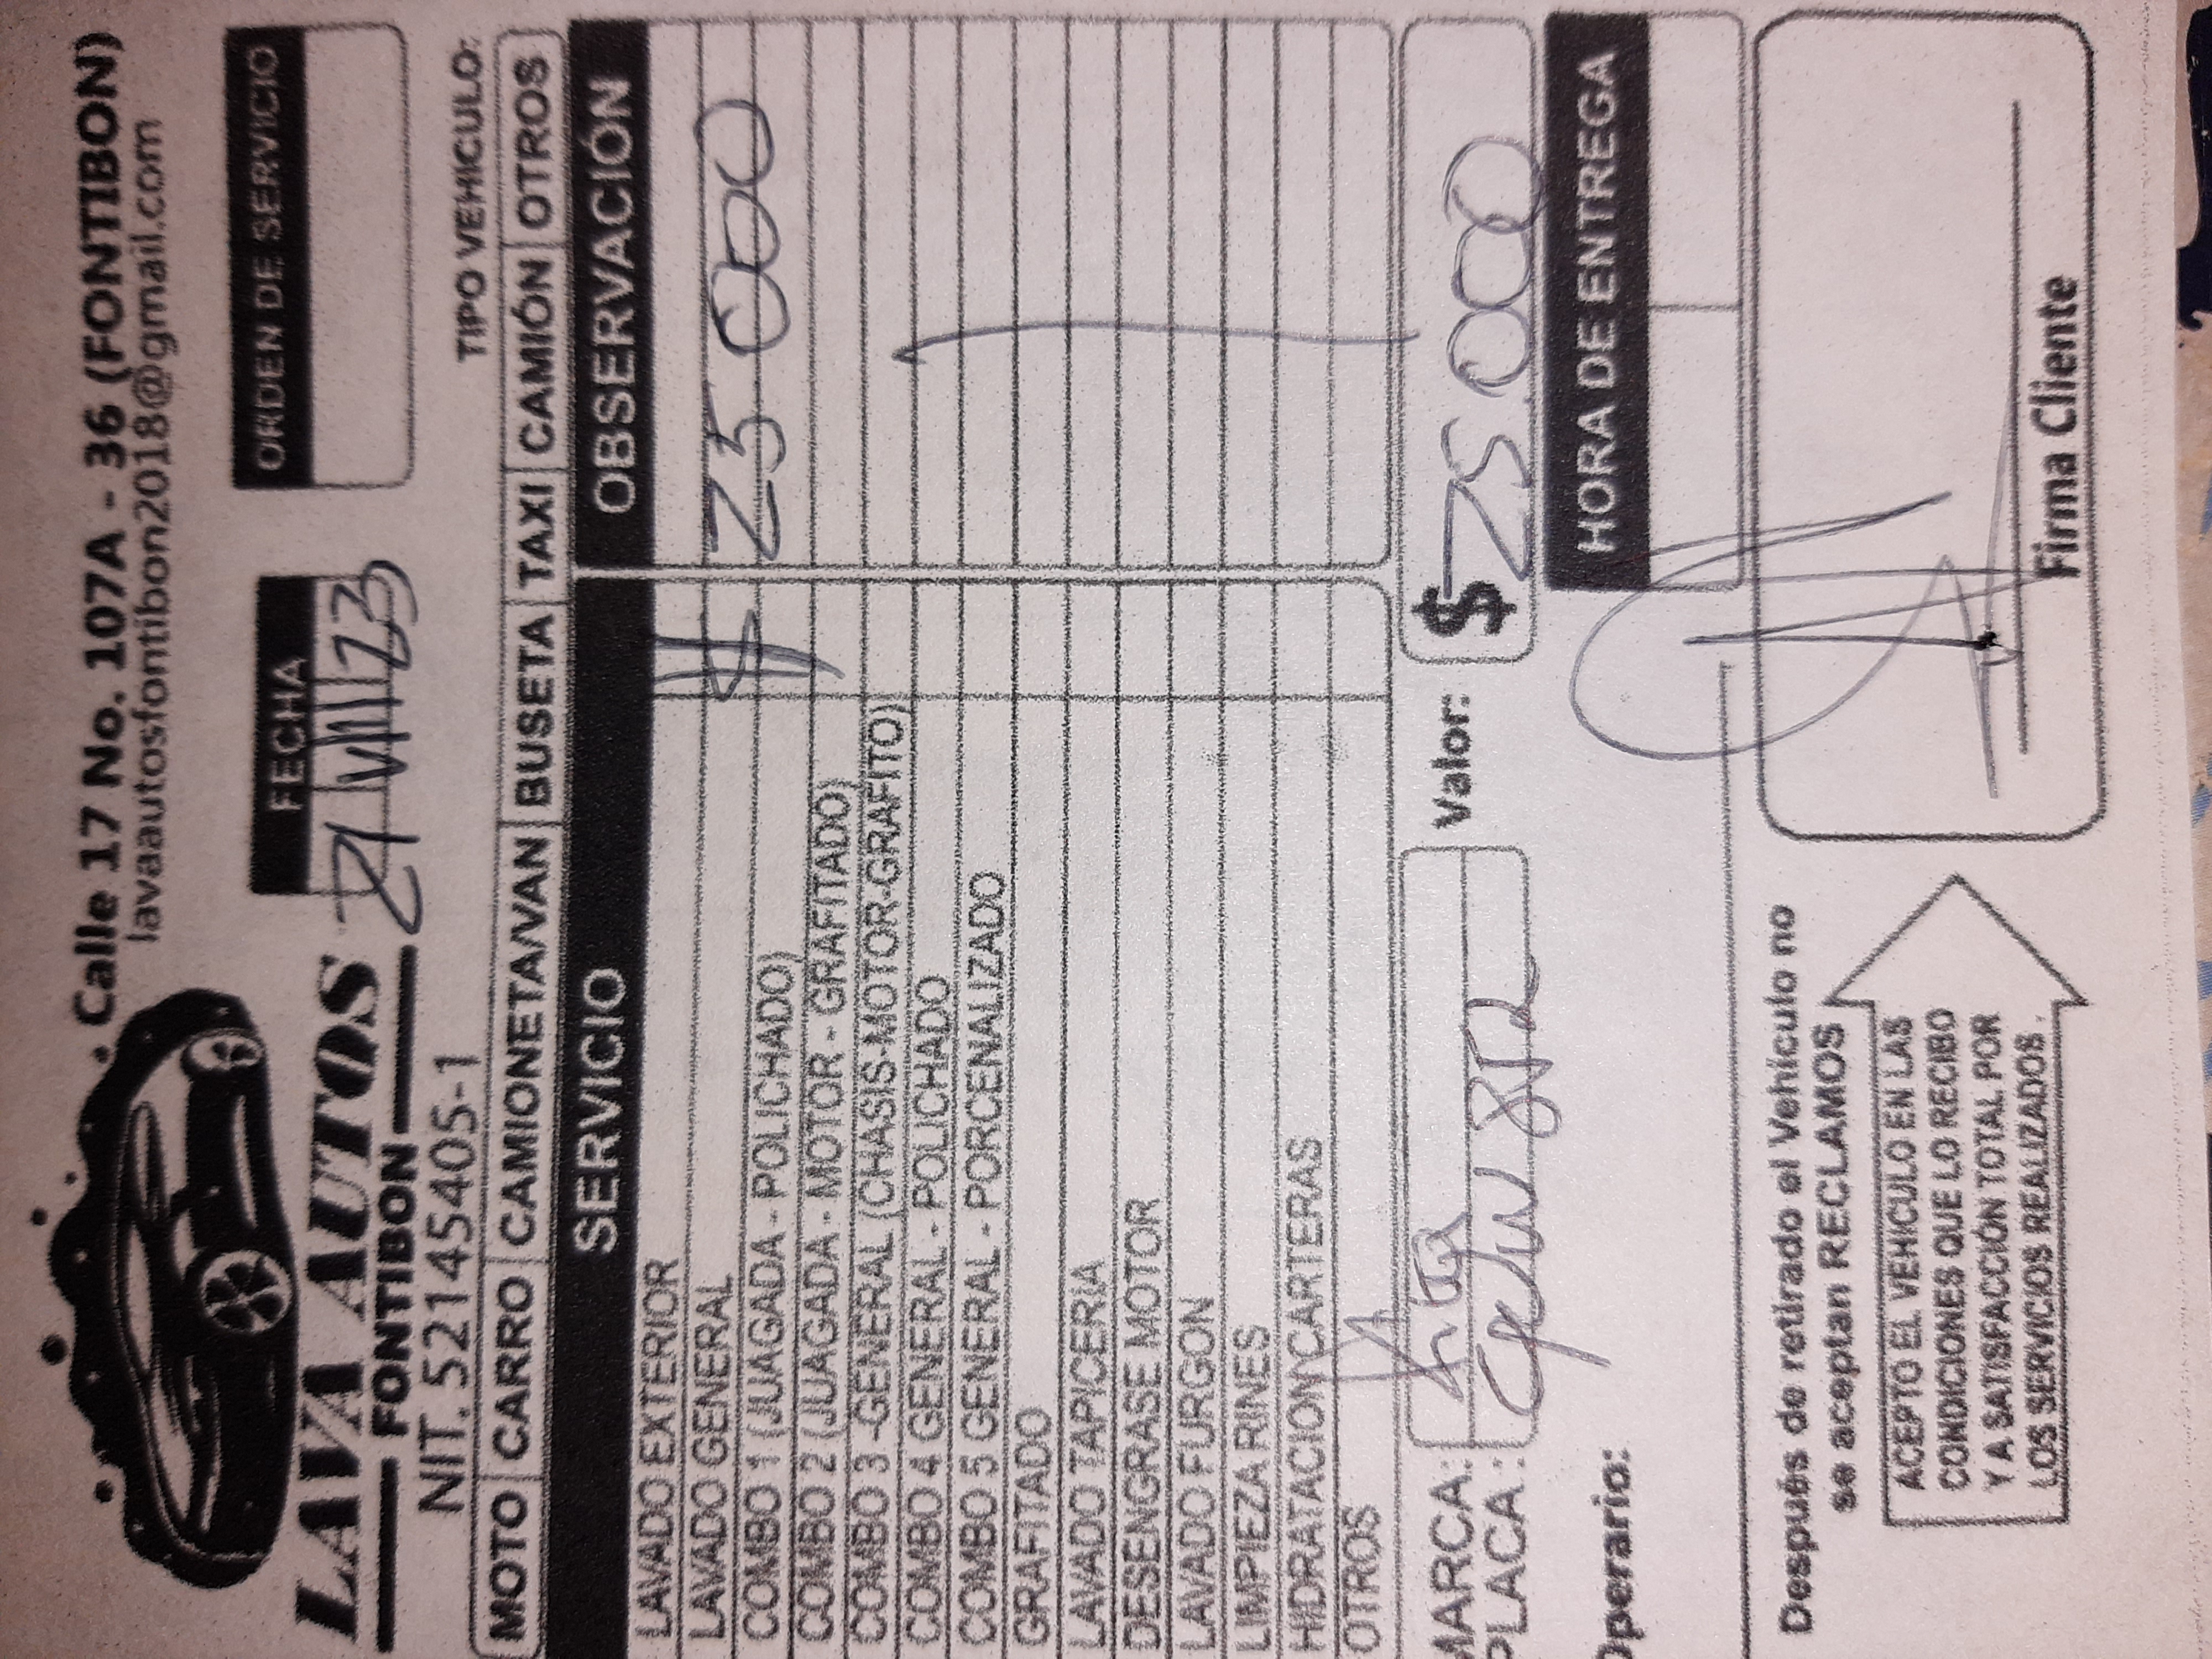 Calle 17 No. 107A - 36 (FONTIBON)
lavaautosfontibon2018@gmail.com
LAVA AUTOS
FONTIBON
NIT. 52145405-1
FECHA
21 VIII 23
ORDEN DE SERVICIO
TIPO VEHICULO:
MOTO CARRO CAMIONETA/VAN BUSETA TAXI CAMIÓN OTROS
SERVICIO OBSERVACIÓN
LAVADO EXTERIOR
LAVADO GENERAL 25 000
COMBO 1 (JUAGADA - POLICHADO)
COMBO 2 (JUAGADA - MOTOR - GRAFITADO)
COMBO 3 -GENERAL (CHASIS-MOTOR-GRAFITO)
COMBO 4 GENERAL - POLICHADO
COMBO 5 GENERAL - PORCENALIZADO
GRAFITADO
LAVADO TAPICERIA
DESENGRASE MOTOR
LAVADO FURGON
LIMPIEZA RINES
HIDRATACION CARTERAS
OTROS
MARCA:
PLACA:
Valor: $ 25.000
Operario:
HORA DE ENTREGA
Después de retirado el Vehículo no
se aceptan RECLAMOS
ACEPTO EL VEHICULO EN LAS
CONDICIONES QUE LO RECIBO
Y A SATISFACCIÓN TOTAL POR
LOS SERVICIOS REALIZADOS.
Firma Cliente